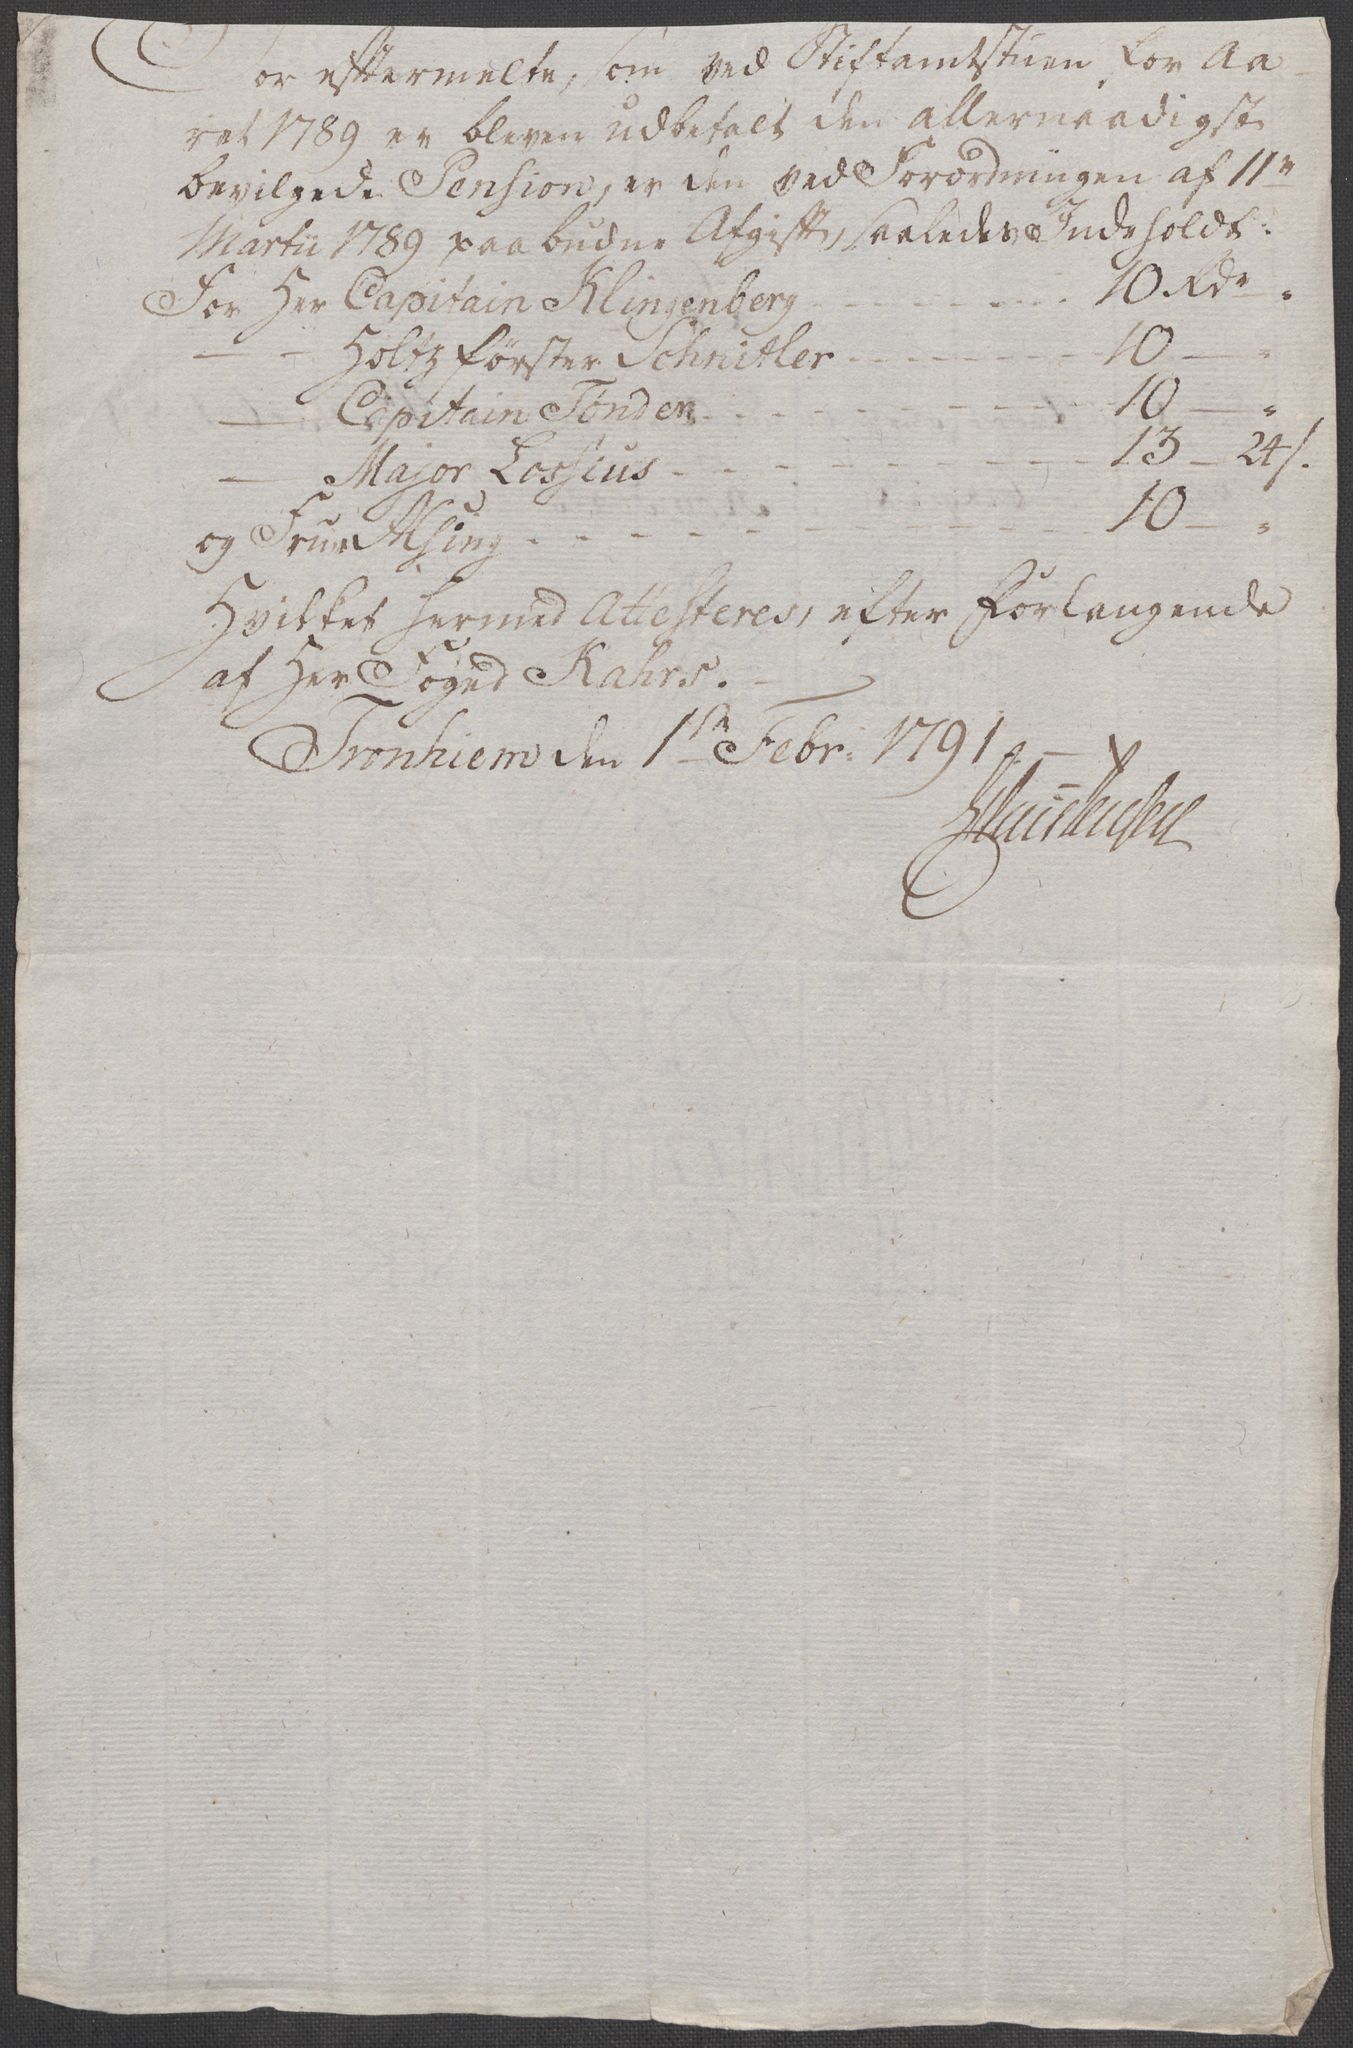 For eftermelte, som ved Stiftamtstuen for Aa-
ret 1789 er bleven udbetalt den allernaadigst
bevilgede Pension, er den ved Forordningen af 11te
Martii 1789 paabudne Afgift, saaledes Indeholdt:
For Her Capitain Klingenberg - - - - 10 Rdr "
— - Holtzförster Schnitler - - - - 10 — "
— Capitain Tönder - - - - 10 — "
— Major Lossius - - - - 13 — 24 s.
og Frue Alsing - - - - 10 — "
Hvilket hermed Attesteres, efter Forlangende
af Her Foged Kahrs. —
Tronhiem den 1ste Febr: 1791. —